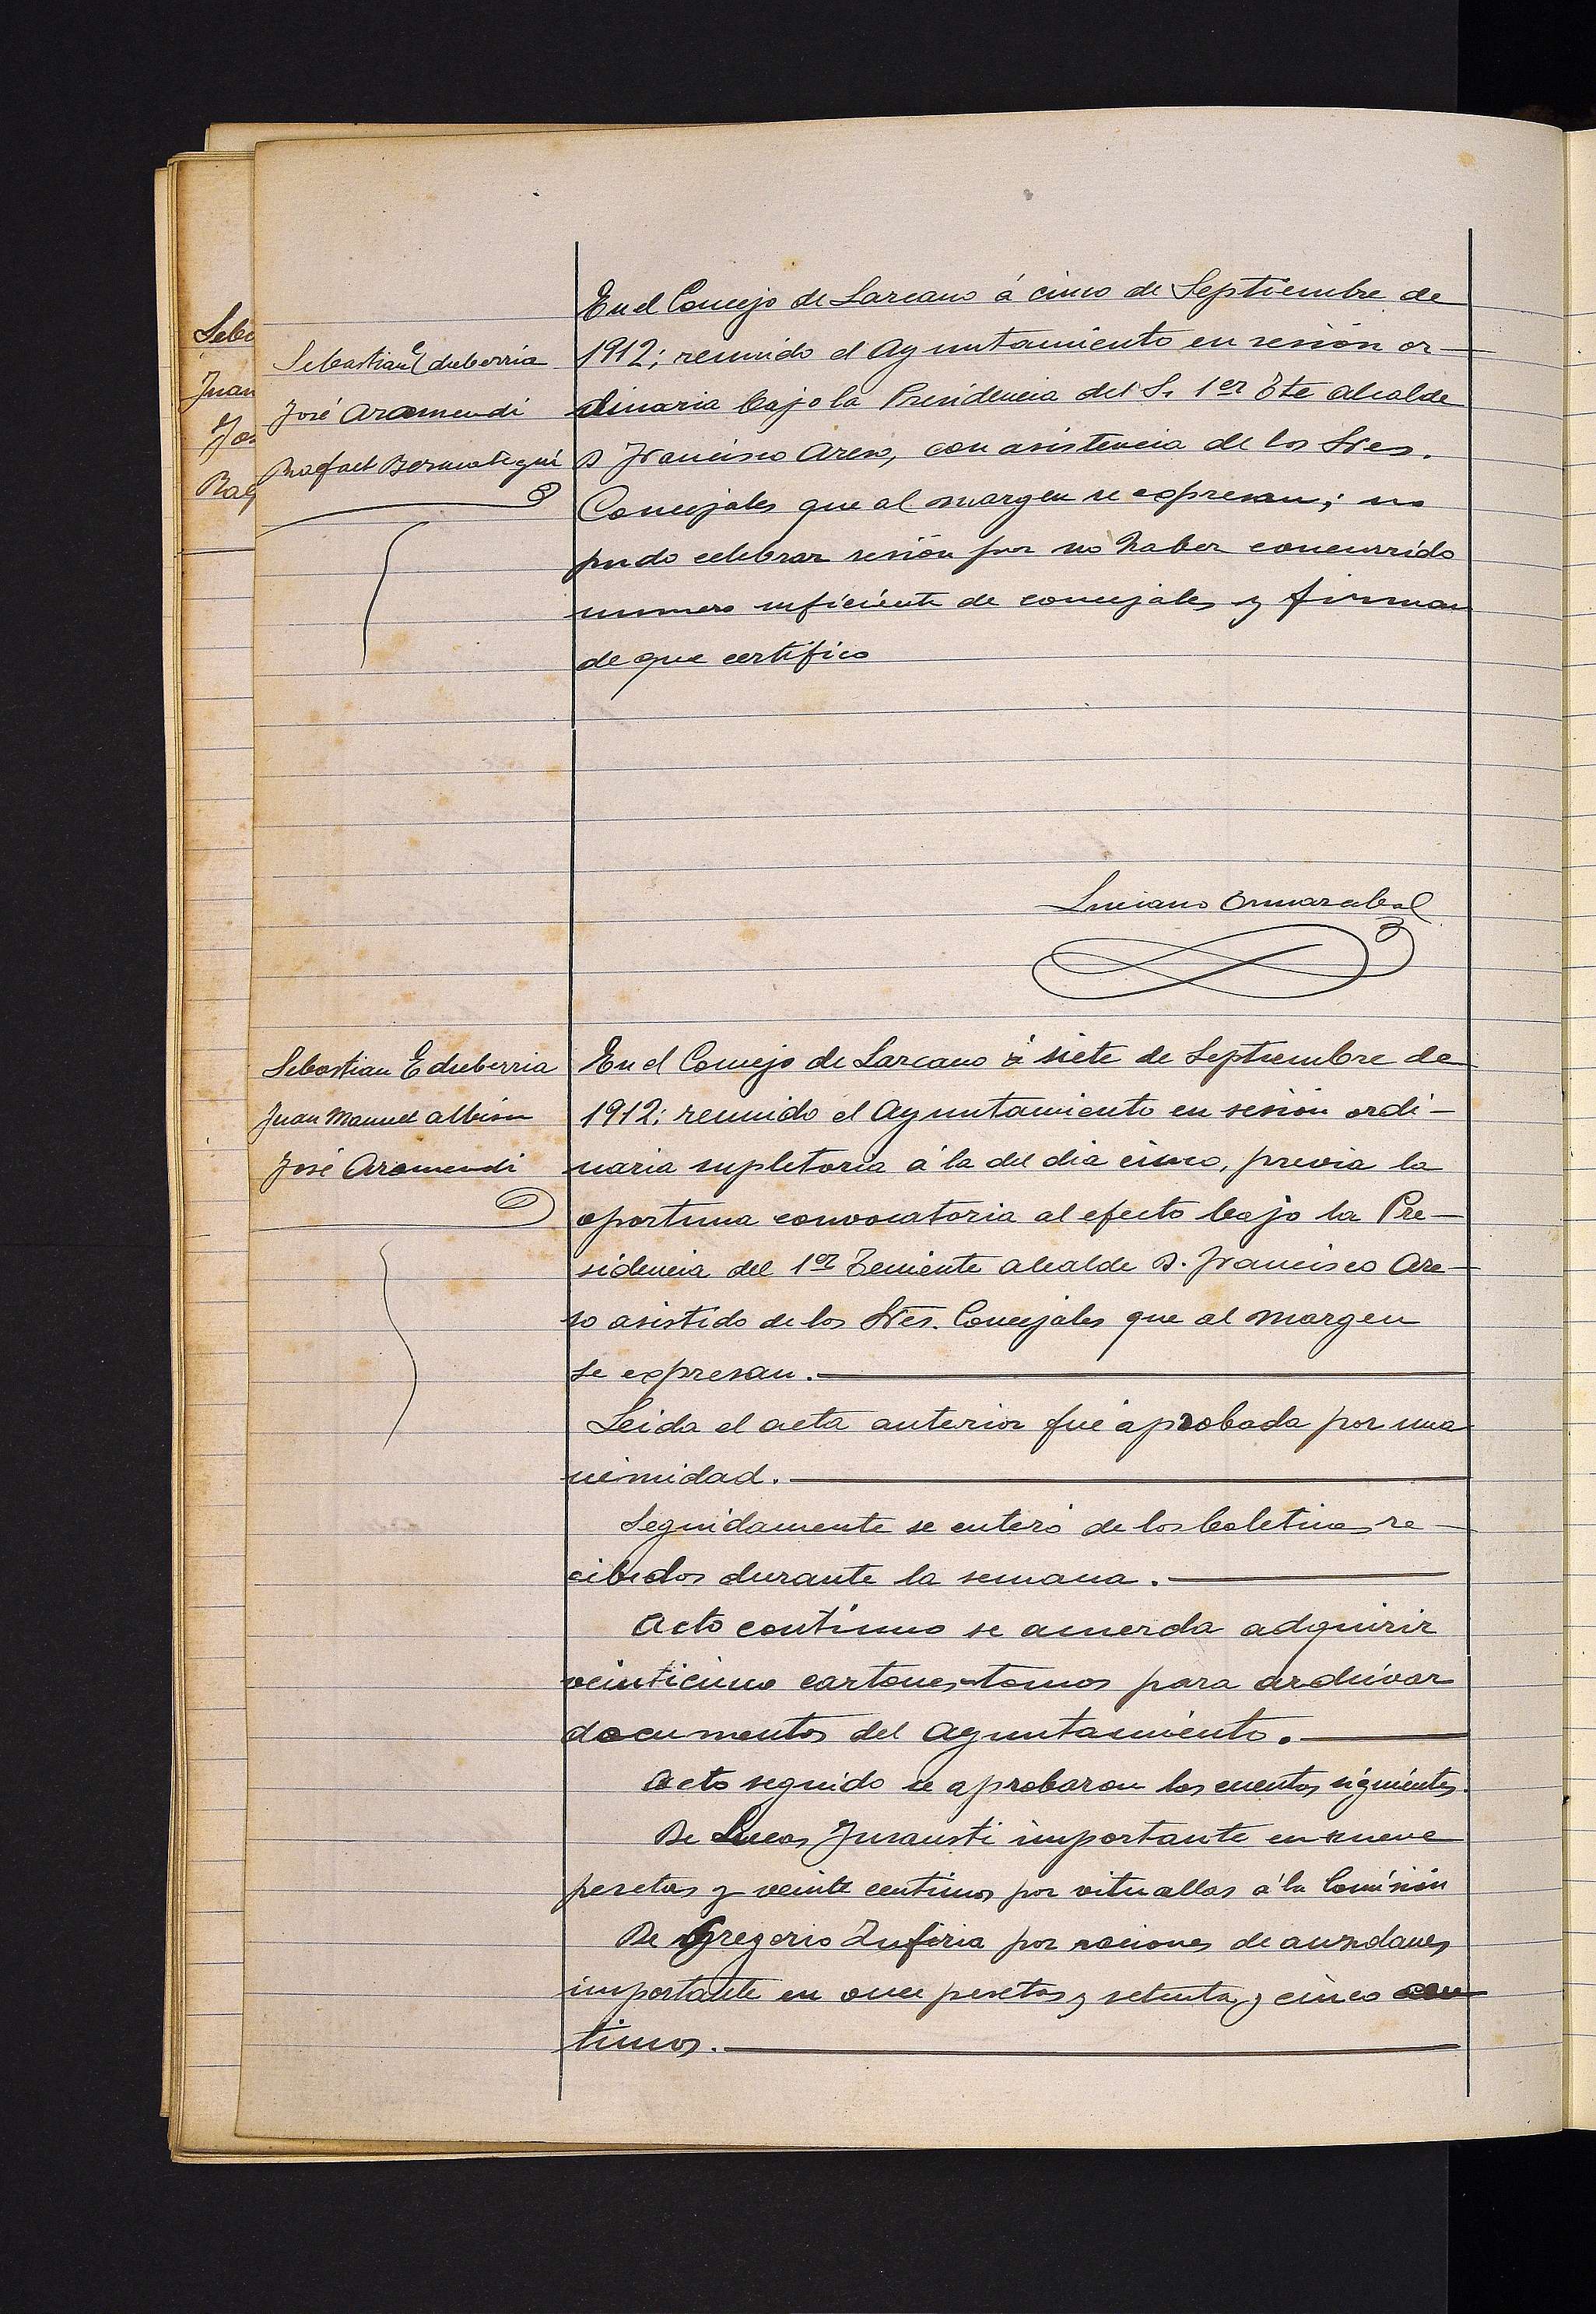 Sebastian Echeberria
José Aramendi
Rafael Bernategui
En el Concejo de Lazcano á cinco de Septiembre de
1912; reunido el Ayuntamiento en sesión or-
dinaria bajo la Presidencia del S. 1er Tte alcalde
D Francisco Areso, con asistencia de los Sres.
Concejales que al margen se expresan; no
pudo celebrar sesión por no haber concurrido
numero suficiente de concejales y firman
de que certifico
Luciano Ormazabal
Sebastian Echeberria
Juan Manuel Albisu
José Aramendi
En el Concejo de Lazcano á siete de Septiembre de
1912; reunido el Ayuntamiento en sesión ordi-
naria supletoria á la del dia cinco, previa la
oportuna convocatoria al efecto bajo la Pre-
sidencia del 1er Teniente alcalde D. Francisco Are-
so asistido de los Sres. Concejales que al margen
se expresan.
Leida el acta anterior fué aprobada por una
nimidad.
Seguidamente se enteró de los boletines re-
cibidos durante la semana.
Acto continuo se acuerda adquirir
veinticinco cartones-tomos para archivar
documentos del Ayuntamiento.
Acto seguido se aprobaron las cuentas siguientes.
De Lucas Jurausti importante en nueve
pesetas y veinte centimos por vituallas á la Comisión
De Gregorio Zufiria por raciones de
importante en once pesetas y setenta y cinco cen
timos.
Sebe
Juan
Jos
Raf